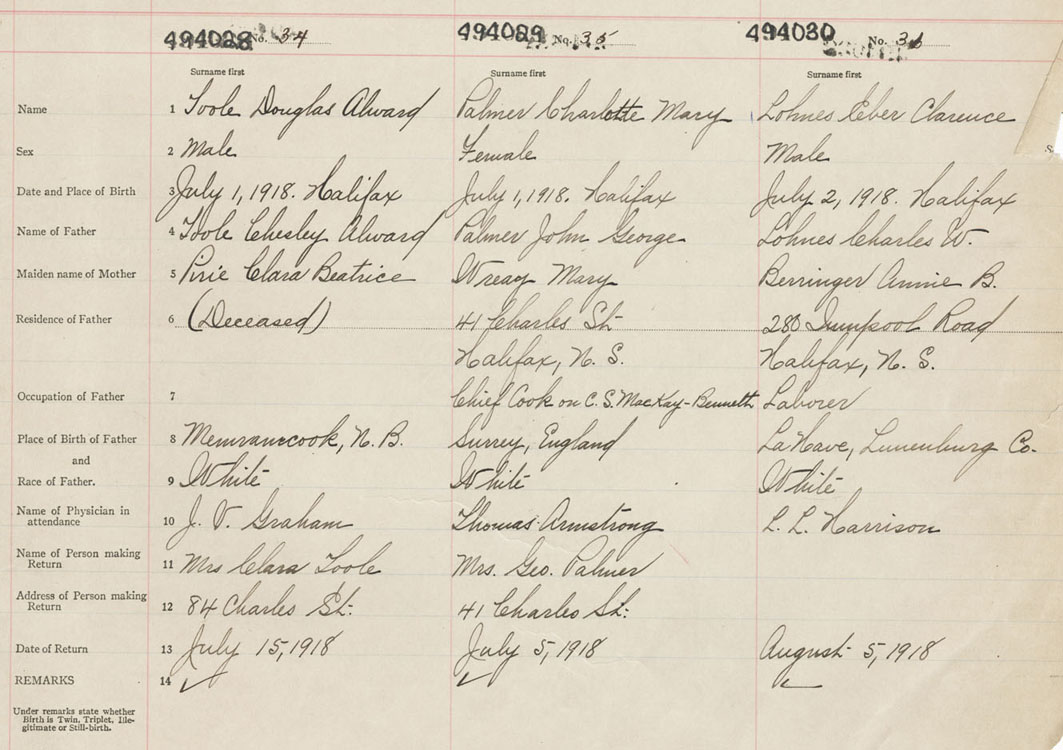 494028 No. 34 494029 No. 35 494030 No. 36
Surname first Surname first Surname first
Name 1 Toole Douglas Alward Palmer Charlotte Mary Lohnes Eber Clarence
Sex 2 Male Female Male
Date and Place of Birth 3 July 1, 1918. Halifax July 1, 1918. Halifax July 2, 1918. Halifax
Name of Father 4 Toole Chesley Alward Palmer John George Lohnes Charles W.
Maiden name of Mother 5 Pirie Clara Beatrice Wreay Mary Berringer Annie B.
Residence of Father 6 (Deceased) 41 Charles St. 280 Road
Halifax, N. S. Halifax, N. S.
Occupation of Father 7 Chief Cook on C. S. MacKay-Bennett Laborer
Place of Birth of Father 8 Memramcook, N. B. Surrey, England LaHave, Lunenburg Co.
and
Race of Father. 9 White White White
Name of Physician in
attendance 10 J. V. Graham Thomas Armstrong L. L. Harrison
Name of Person making
Return 11 Mrs Clara Toole Mrs. Geo. Palmer
Address of Person making
Return 12 84 Charles St. 41 Charles St.
Date of Return 13 July 15, 1918 July 5, 1918 August 5, 1918
REMARKS 14
Under remarks state whether
Birth is Twin, Triplet, Ille-
gitimate or Still-birth.